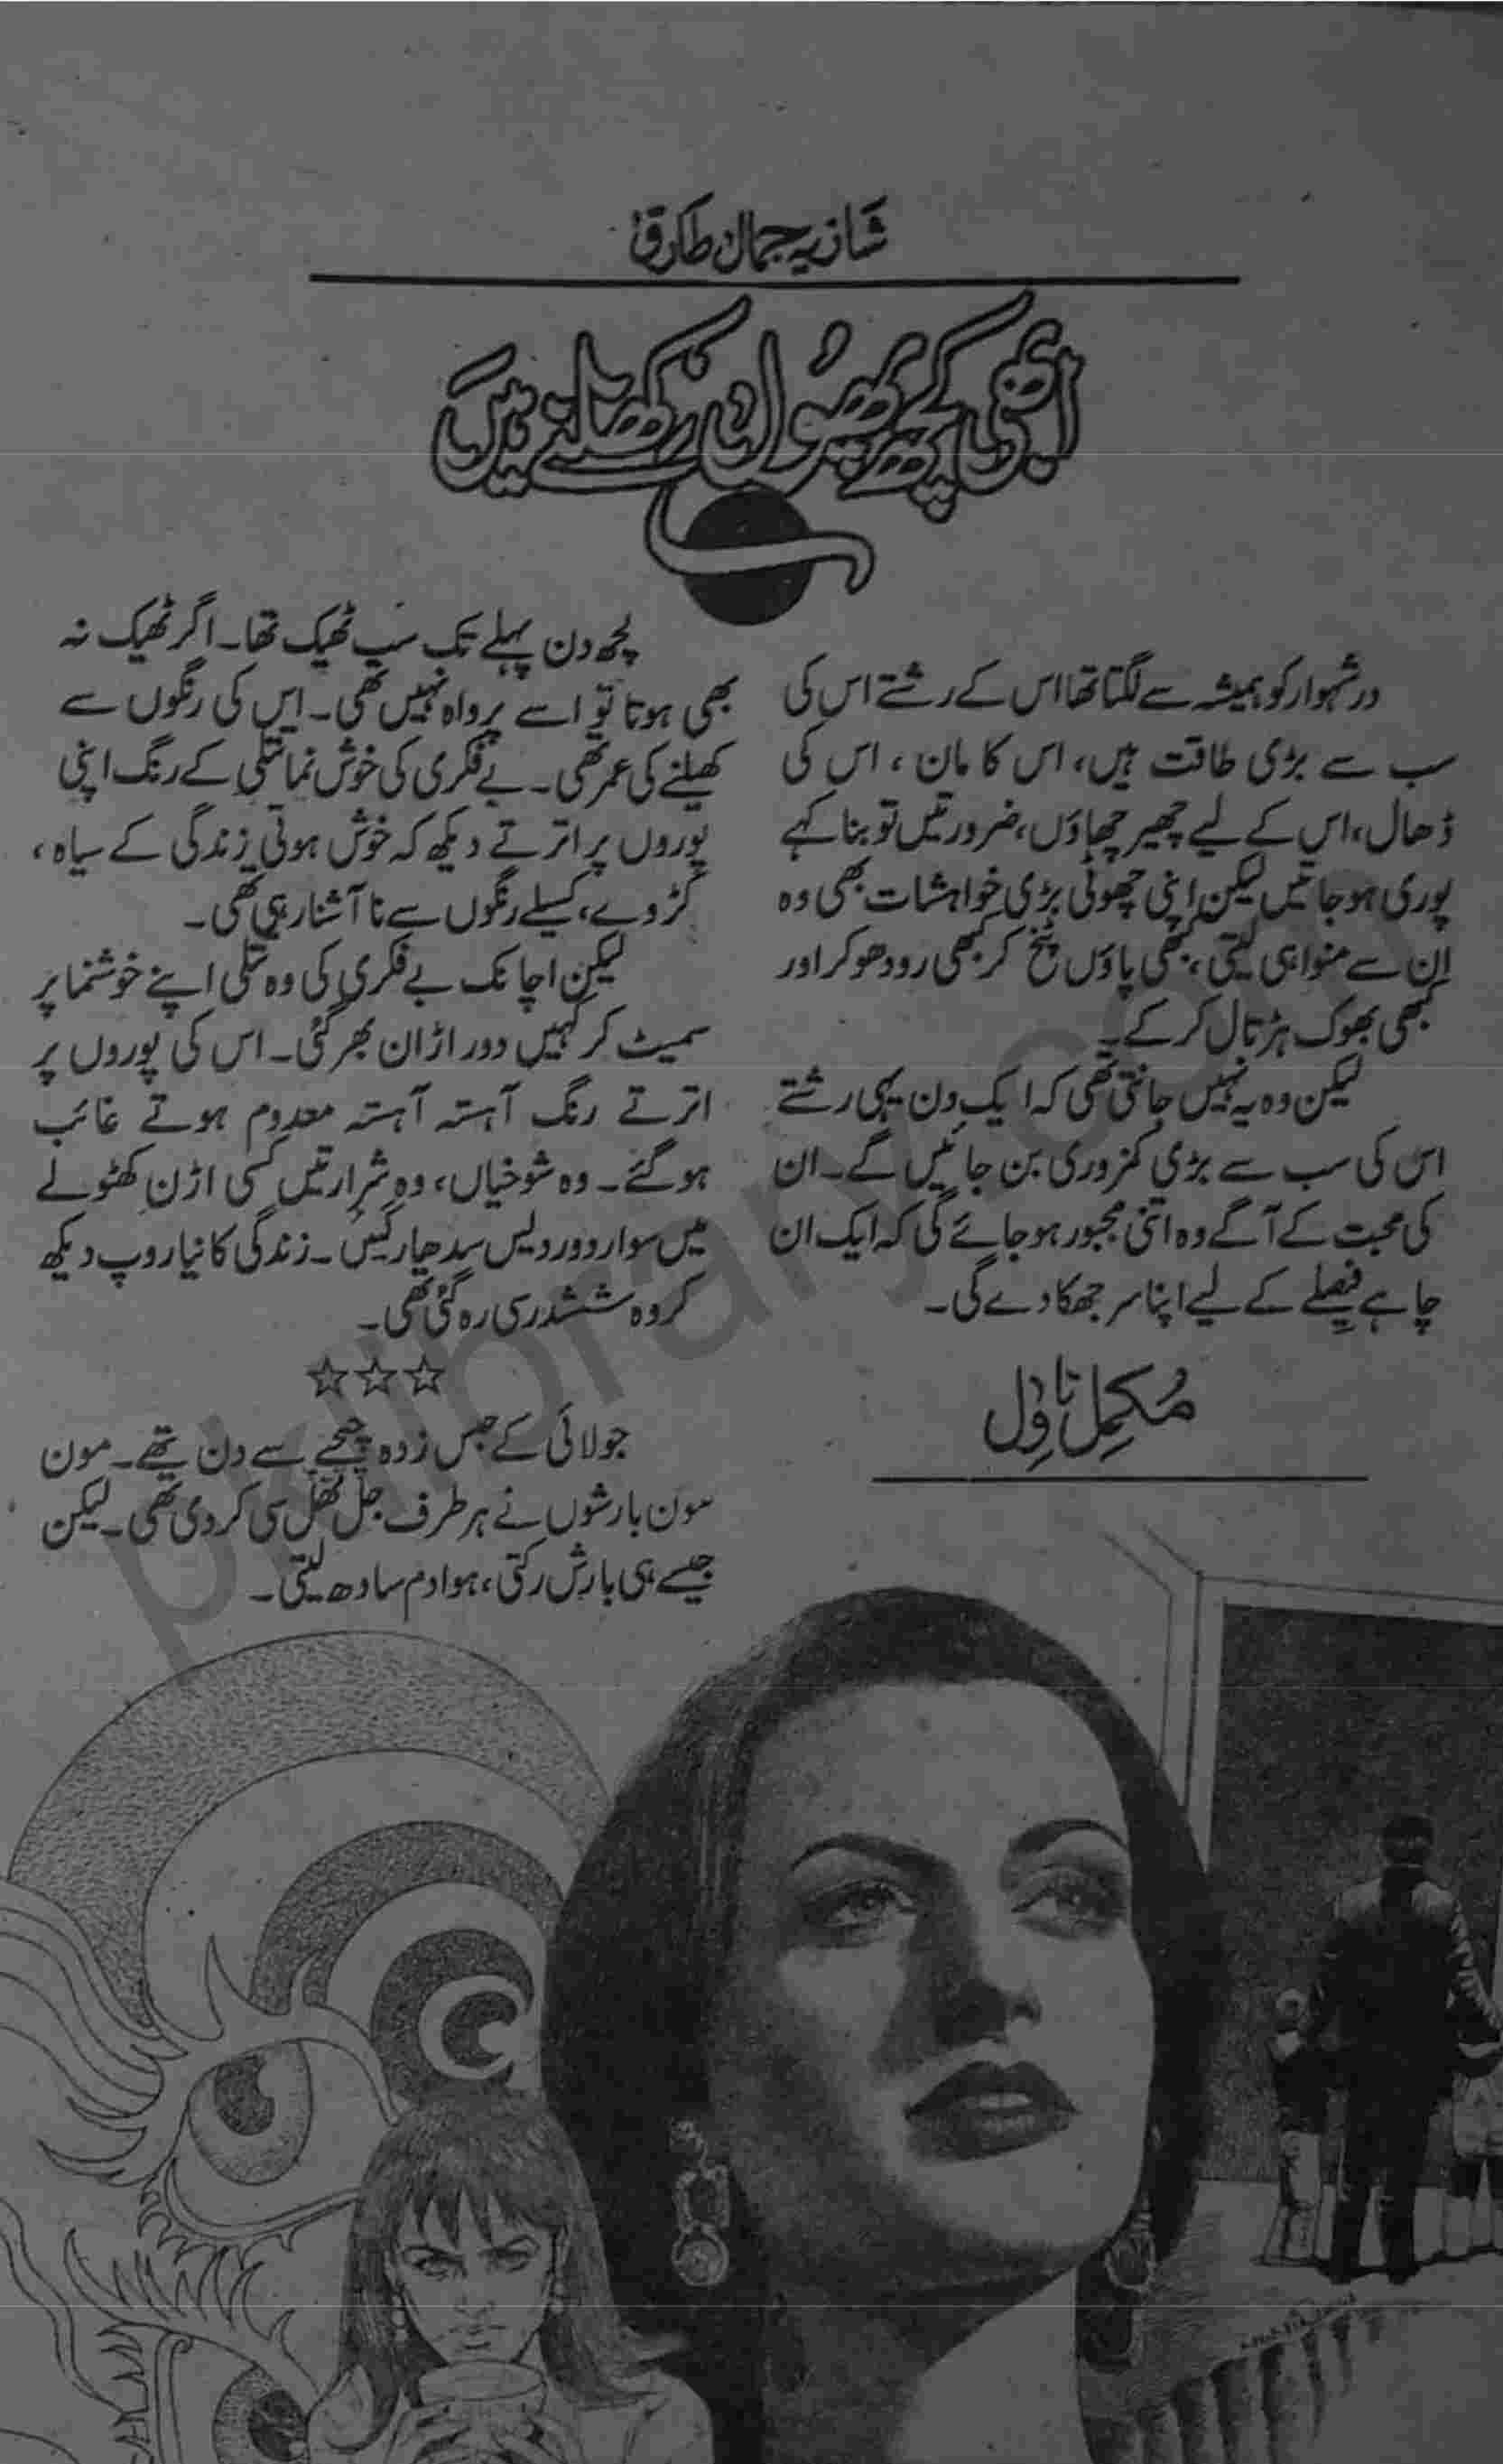 شازیہ جمال طارق
ابھی کچھ پھول کھلنے ہیں
در شہوار کو ہمیشہ سے لگتا تھا اس کے رشتے اس کی
سب سے بڑی طاقت ہیں، اس کا مان، اس کی
ڈھال، اس کے لیے چھپر چھاؤں، ضرورتیں تو بنا کہے
پوری ہوجاتیں لیکن اپنی چھوٹی بڑی خواہشات بھی وہ
ان سے منوا ہی لیتی، کبھی پاؤں پٹخ کر کبھی رو دھو کر اور
کبھی بھوک ہڑتال کرکے۔
لیکن وہ یہ نہیں جانتی تھی کہ ایک دن یہی رشتے
اس کی سب سے بڑی کمزوری بن جائیں گے۔ ان
کی محبت کے آگے وہ اتنی مجبور ہوجائے گی کہ ایک ان
چاہے فیصلے کے لیے اپنا سر جھکا دے گی۔
مکمل ناول
کچھ دن پہلے تک سب ٹھیک تھا۔ اگر ٹھیک نہ
بھی ہوتا تو اسے پرواہ نہیں تھی۔ اس کی رنگوں سے
کھیلنے کی عمر تھی۔ بے فکری کی خوش نما تتلی کے رنگ اپنی
پوروں پر اترتے دیکھ کہ خوش ہوتی زندگی کے سیاہ،
کڑوے، کسیلے رنگوں سے نا آشنا رہی تھی۔
لیکن اچانک بے فکری کی وہ تتلی اپنے خوشنما پر
سمیٹ کر کہیں دور اڑان بھر گئی۔ اس کی پوروں پر
اترتے رنگ آہستہ آہستہ معدوم ہوتے غائب
ہوگئے۔ وہ شوخیاں، وہ شرارتیں کسی اڑن کھٹولے
میں سوار دور دیس سدھار گئیں۔ زندگی کا نیا روپ دیکھ
کر وہ ششدر سی رہ گئی تھی۔
☆☆☆
جولائی کے حبس زدہ چپچپے سے دن تھے۔ مون
سون بارشوں نے ہر طرف جل تھل سی کردی تھی۔ لیکن
جیسے ہی بارش رکتی، ہوا دم سادھ لیتی۔
pklibrary.com